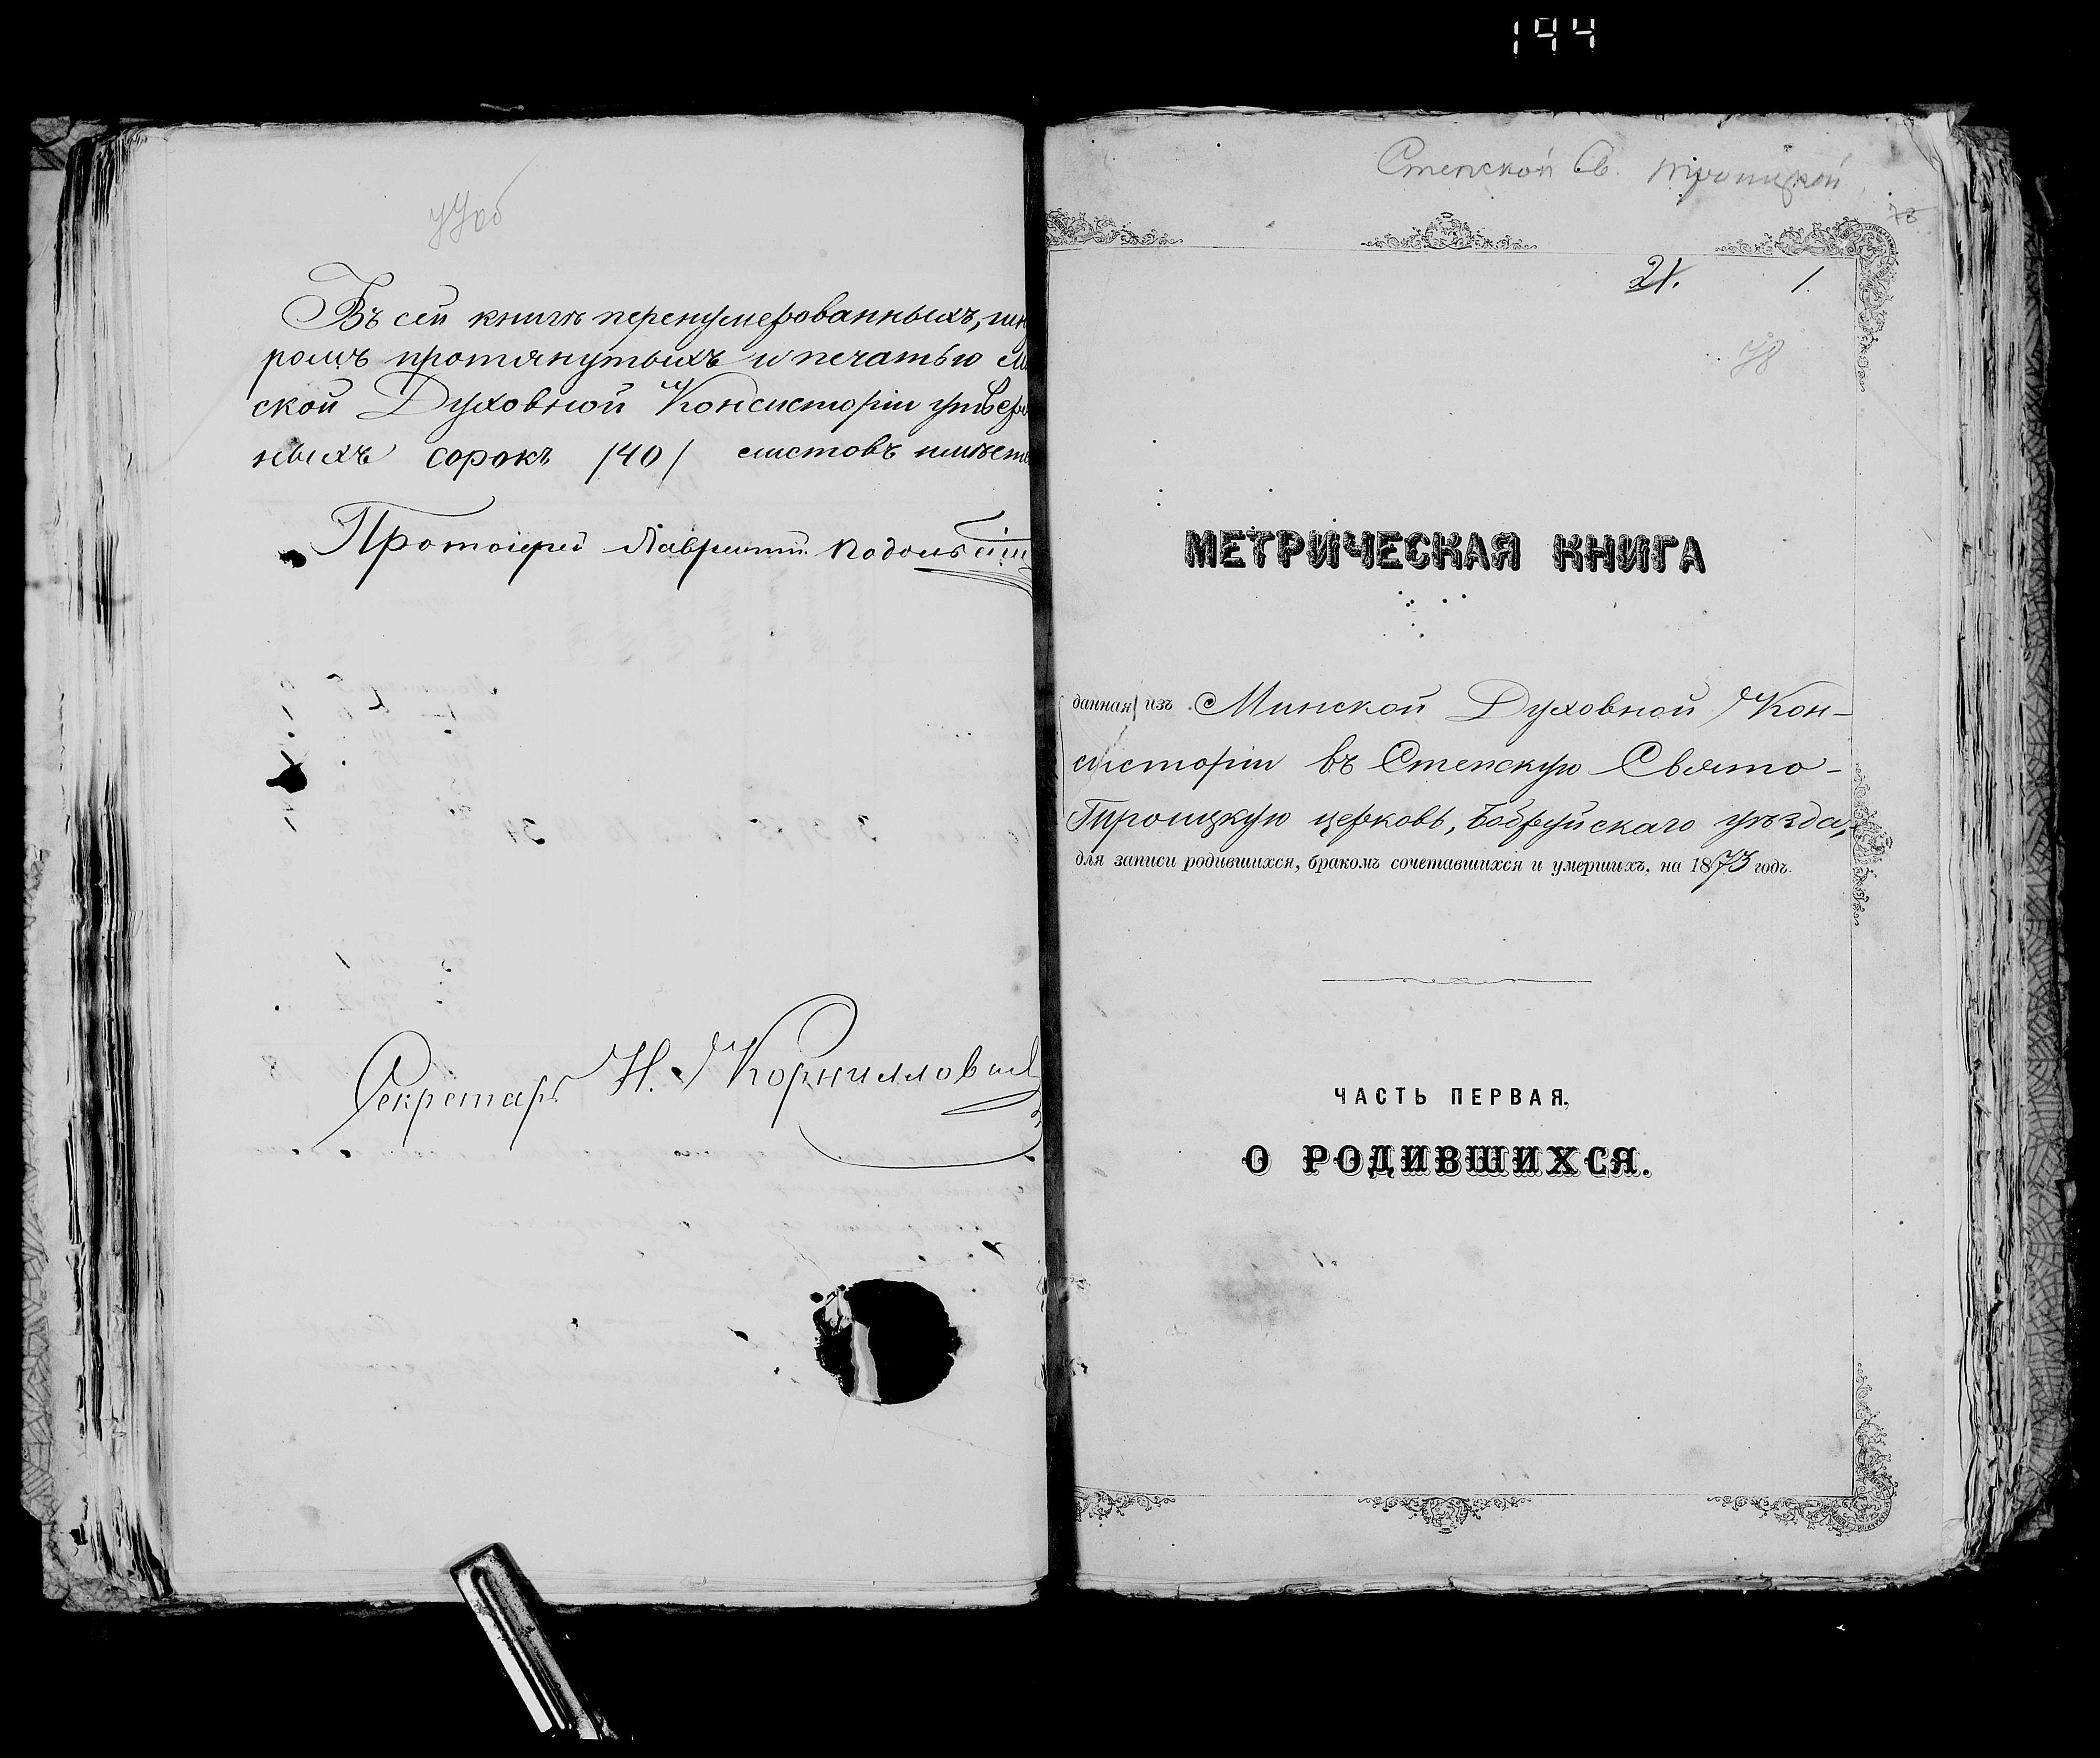 194
77об
Въ сей книгѣ перенумерованныхъ, шну
ромъ протянутыхъ и печатью М
ской Духовной Консисторіи утверж
ныхъ сорокъ /40/ листовъ имѣет
Протоіерей Лаврентій Подольскій
Секретарь Н. Корнилович
Степской Св. Троицкой
78
21. 1.
78
МЕТРИЧЕСКАЯ КНИГА
данная изъ Минской Духовной Кон-
систоріи въ Степскую Свято-
Троицкую церковь, Бобруйскаго уѣзда,
для записи родившихся, бракомъ сочетавшихся и умершихъ, на 1873 годъ.
ЧАСТЬ ПЕРВАЯ,
О РОДИВШИХСЯ.